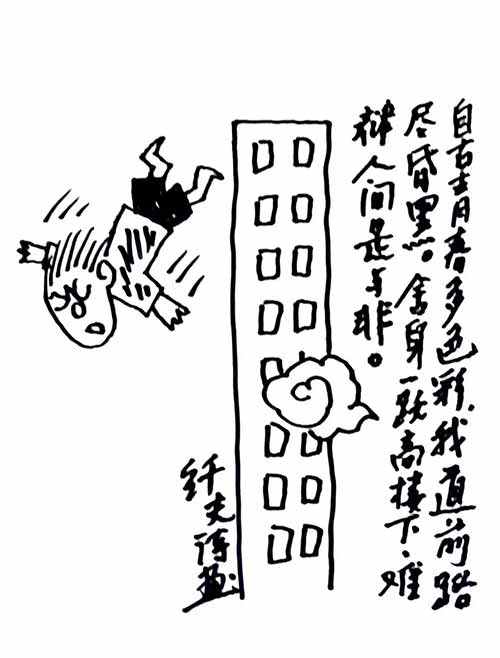 自古青春多色彩，我直前路
尽昏黑。舍身一跃高楼下，难
辩人间是与非。
纤夫诗画